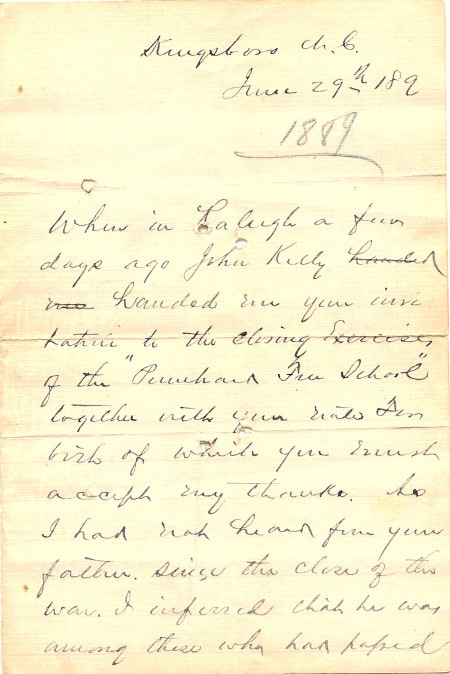 Kingsboro N. C.
June 29th 189
1889
When in Raleigh a few
days ago John Kelly handed
me handed me your invi
tation to the closing Exercises
of the "Punchard Free School"
together with your note For
both of which you must
accept my thanks. As
I had not heard from your
father. since the close of the
war. I inferred that he was
among these who had passed